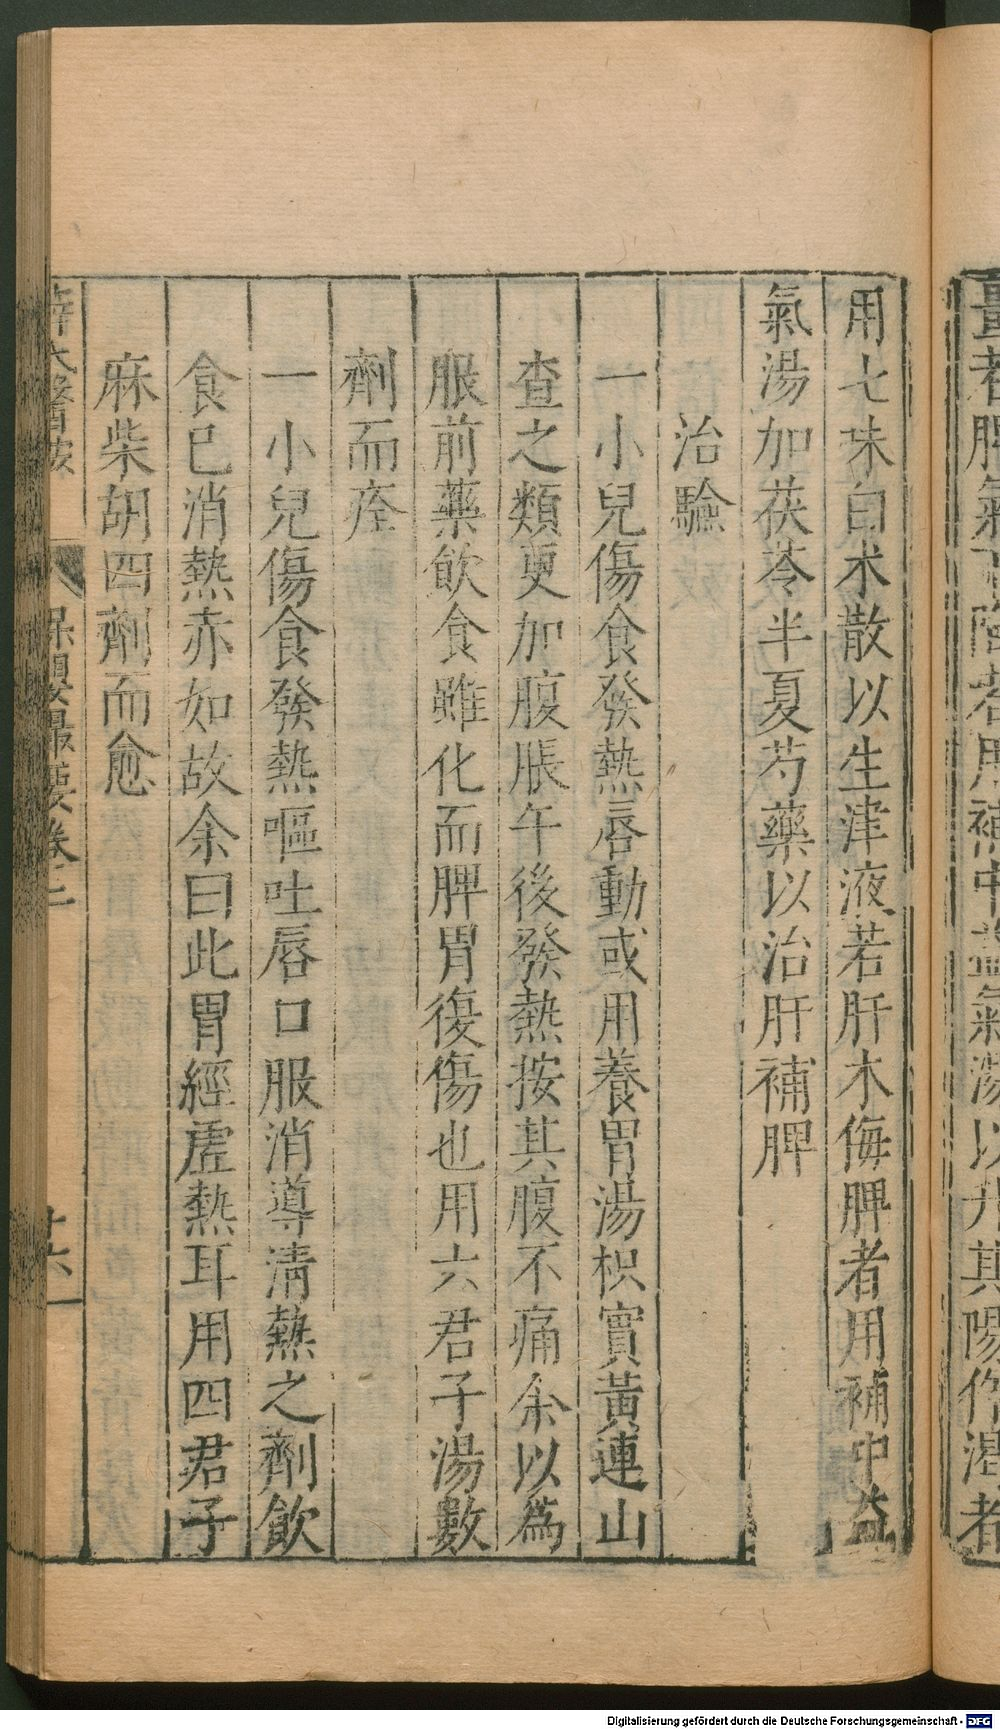 用七味白术散以生津液若肝木侮脾者用補中益
氣湯加茯苓半夏芍藥以治肝補脾
治驗
一小兒傷食發熱唇動或用養胃湯枳實黃連山
查之類更加腹脹午後發熱按其腹不痛余以為
服前藥飲食雖化而脾胃復傷也用六君子湯數
劑而痊
一小兒傷食發熱嘔吐唇口服消導清熱之劑飲
食已消熱赤如故余曰此胃經虛熱耳用四君子
麻柴胡四劑而愈
保嬰最要卷
者脾氣下陷者用補中益氣湯以升其陽作渴者
Digitalisierung gefördert durch die Deutsche Forschungsgemeinschaft - DFG